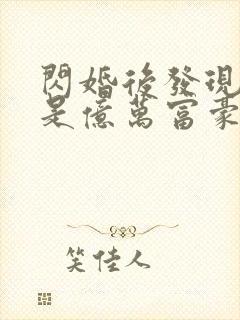 閃婚後發現
是億萬富豪
笑佳人